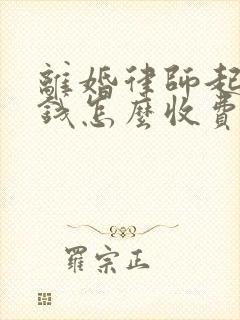 離婚律師起
錢怎麼收費
羅宗正